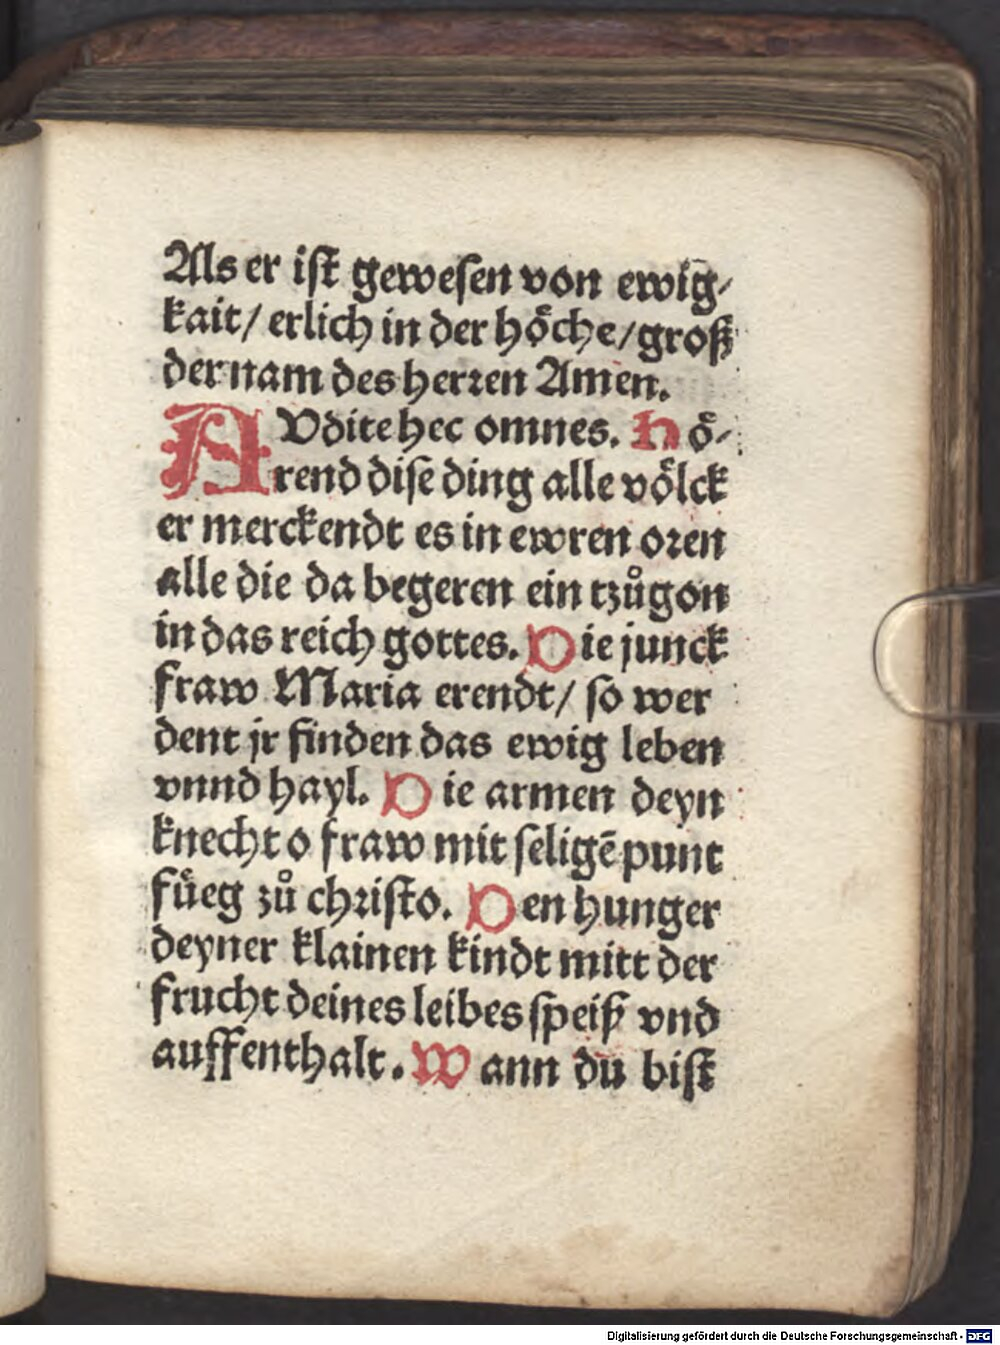 Als er iſt geweſen von ewig⸗
kait/ erlich in der hoͤche/groſz
der nam des herꝛen Amen.
AVdite hec omnes. Hoͤ⸗
rend diſe ding alle voͤlck
er merckendt es in ewren oꝛen
alle die da begeren ein tzůgon
in das reich gottes. Die junck
fraw Maria erendt/ ſo wer
dent jr finden das ewig leben
vnnd hayl. Die armen deyn
knecht o fraw mit ſeligē punt
fuͤeg zů chꝛiſto. Den hunger
deyner klainen kindt mitt der
frucht deines leibes ſpeiſz vnd
auffenthalt. Wann du biſt
Digitalisierung gefördert durch die Deutsche Forschungsgemeinschaft - DFG